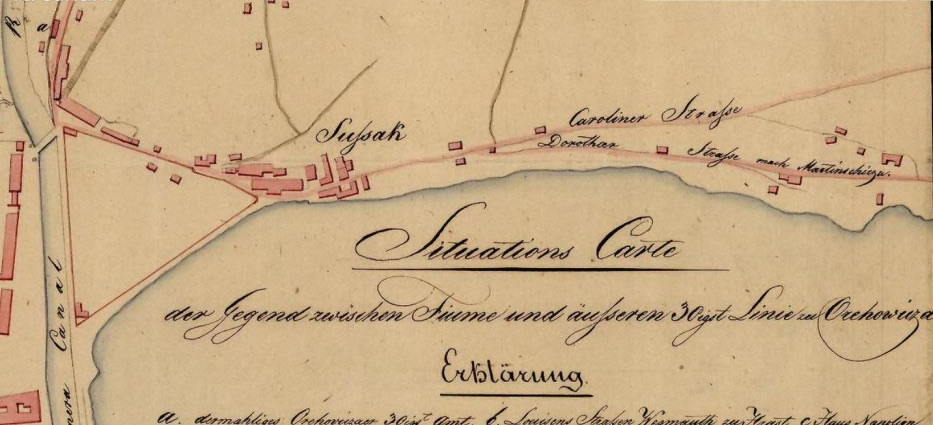 a
Sußak
Caroliner Strasse
Dorothar Strasse nach Martinschicza.
Canal
Situations Carte
der Gegend zwischen Fiume und äusseren 30igst Linie zu Orehowicza
Erklärung.
a. dermahliges Orehoviczaer 30igst Amt. b. Louisens Strassen c. Haus Napolien